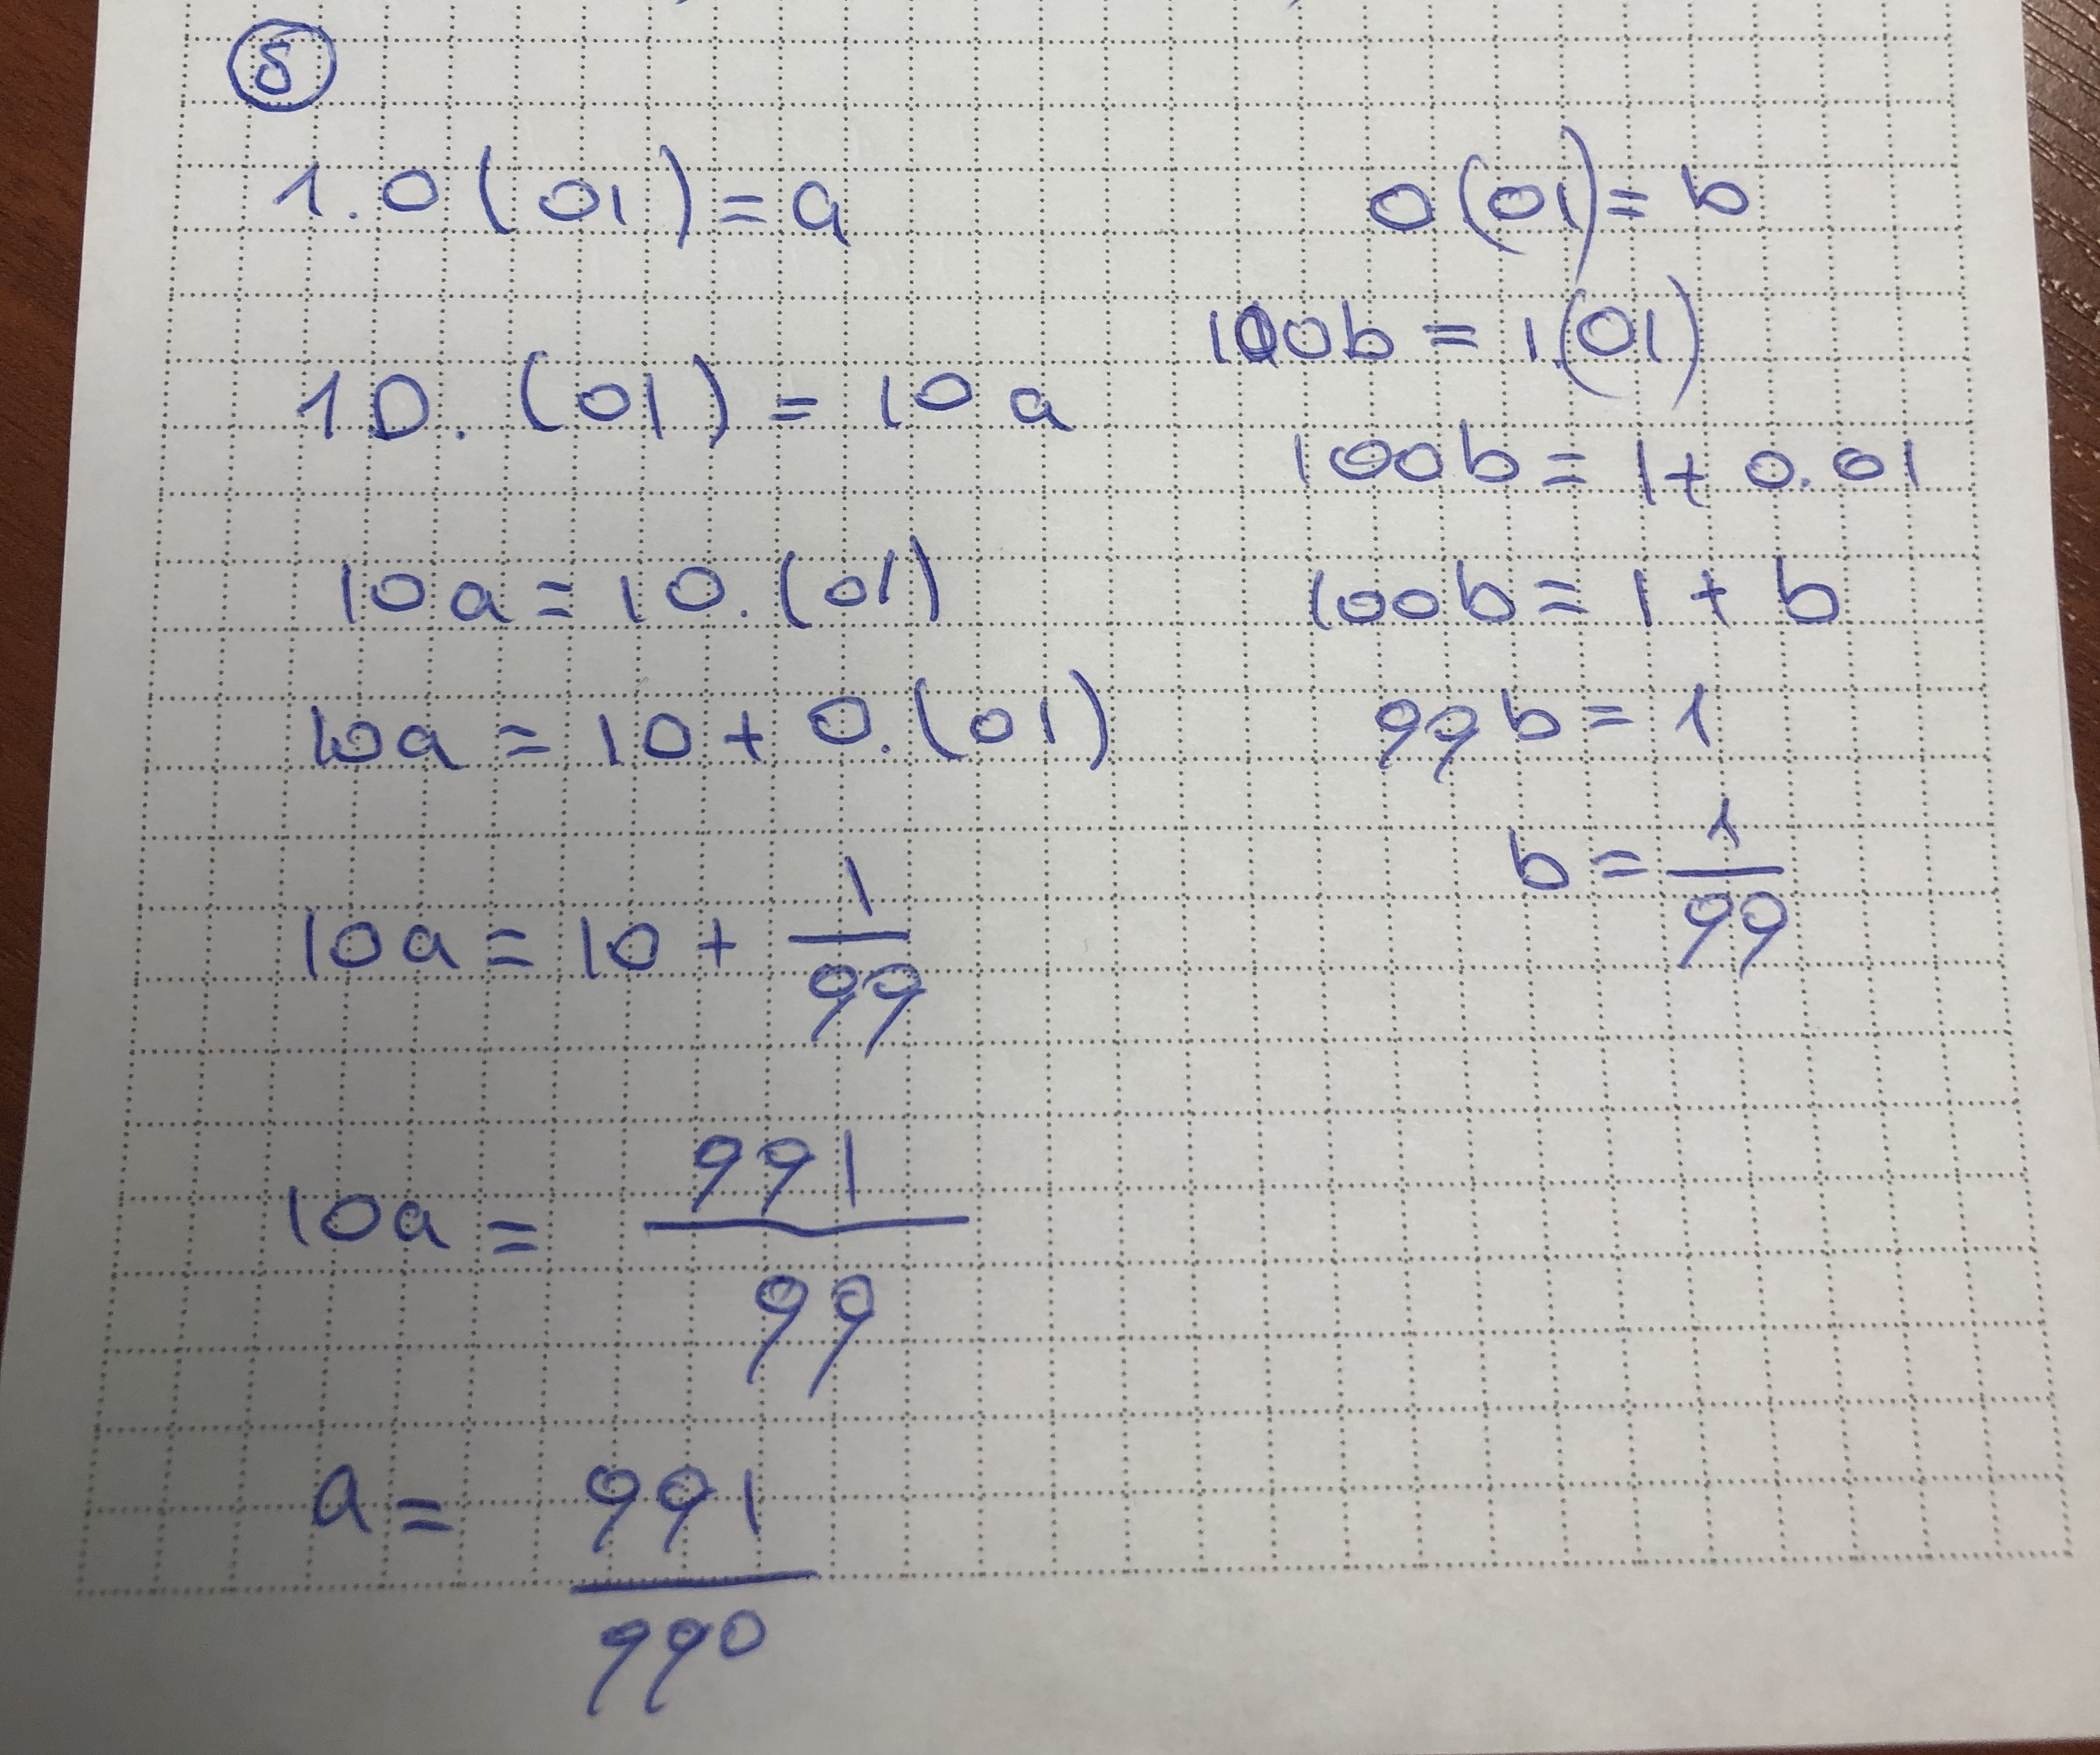 8
1.0(01)=a
10.(01)=10a
10a=10.(01)
10a=10+0.(01)
10a=10+1/99
10a=991/99
a=991/990
0(01)=b
100b=1.(01)
100b=1+0.01
100b=1+b
99b=1
b=1/99